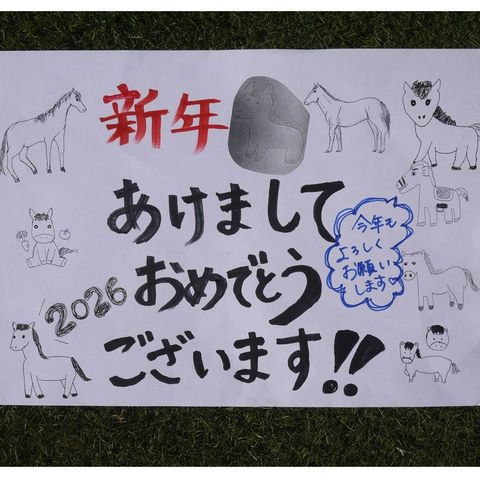 新年
あけまして
おめでとう
ございます!!
2026
今年も
よろしく
お願い
します♡